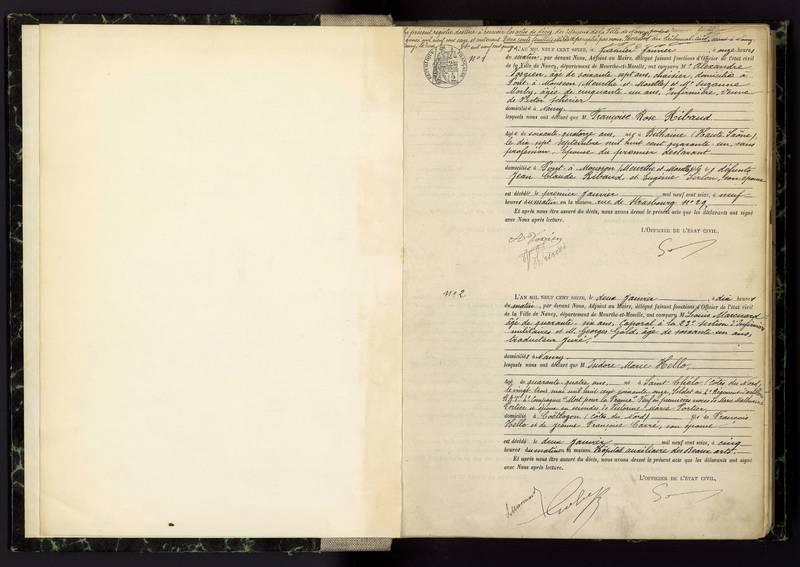 Le présent registre destiné à recevoir les actes de décès des citoyens de la Ville de Nancy pendant
N° 1
L'AN MIL NEUF CENT SEIZE, le premier Janvier, à onze heures
du matin, par devant Nous, Adjoint au Maire, délégué faisant fonctions d'Officier de l'état civil
de la Ville de Nancy, département de Meurthe-et-Moselle, ont comparu M. Alexandre
âgé de soixante sept ans, chaisier, domicilié à
Pont-à-Mousson (Meurthe et Moselle) & Me Suzanne
âgée de cinquante un ans, Infirmière, veuve
de Victor
domiciliés à Nancy
lesquels nous ont déclaré que M. Françoise Rose Ribaud
âgée de soixante quatorze ans, née à Béthaine (Haute Saône),
le dix sept septembre mil huit cent quarante un, sans
profession. Epouse du premier déclarant
domiciliée à Pont à Mousson (Meurthe et Moselle), défunts
Jean Claude Ribaud et Eugénie, son épouse
est décédée le premier Janvier mil neuf cent seize, à neuf
heures du matin en sa maison, rue de Strasbourg N° 29
Et après nous être assuré du décès, nous avons dressé le présent acte que les déclarants ont signé
avec Nous après lecture.
L'OFFICIER DE L'ÉTAT CIVIL,
N° 2
L'AN MIL NEUF CENT SEIZE, le deux Janvier, à dix heures
du matin, par devant Nous, Adjoint au Maire, délégué faisant fonctions d'Officier de l'état civil
de la Ville de Nancy, département de Meurthe-et-Moselle, ont comparu M. Louis
âgé de quarante six ans, Caporal à la 23e section d'Infirmiers
militaires et M. Georges Gold, âgé de soixante un ans,
traducteur juré,
domiciliés à Nancy
lesquels nous ont déclaré que M. Isidore Marie Hello,
âgé de quarante quatre ans, né à Saint Thélo (Côtes du Nord),
le vingt trois mai mil huit cent soixante onze, Soldat au
Compagnie "Mort pour la France" Veuf en premières noces de Marie
Portier & époux en secondes de Victorine Marie Portier,
domicilié à Coëtlogon (Côtes du Nord) fils de François
Hello et de Jeanne Françoise Carré, son épouse
est décédé le deux Janvier mil neuf cent seize, à cinq
heures du matin en sa maison, Hôpital auxiliaire des Beaux arts.
Et après nous être assuré du décès, nous avons dressé le présent acte que les déclarants ont signé
avec Nous après lecture.
L'OFFICIER DE L'ÉTAT CIVIL,